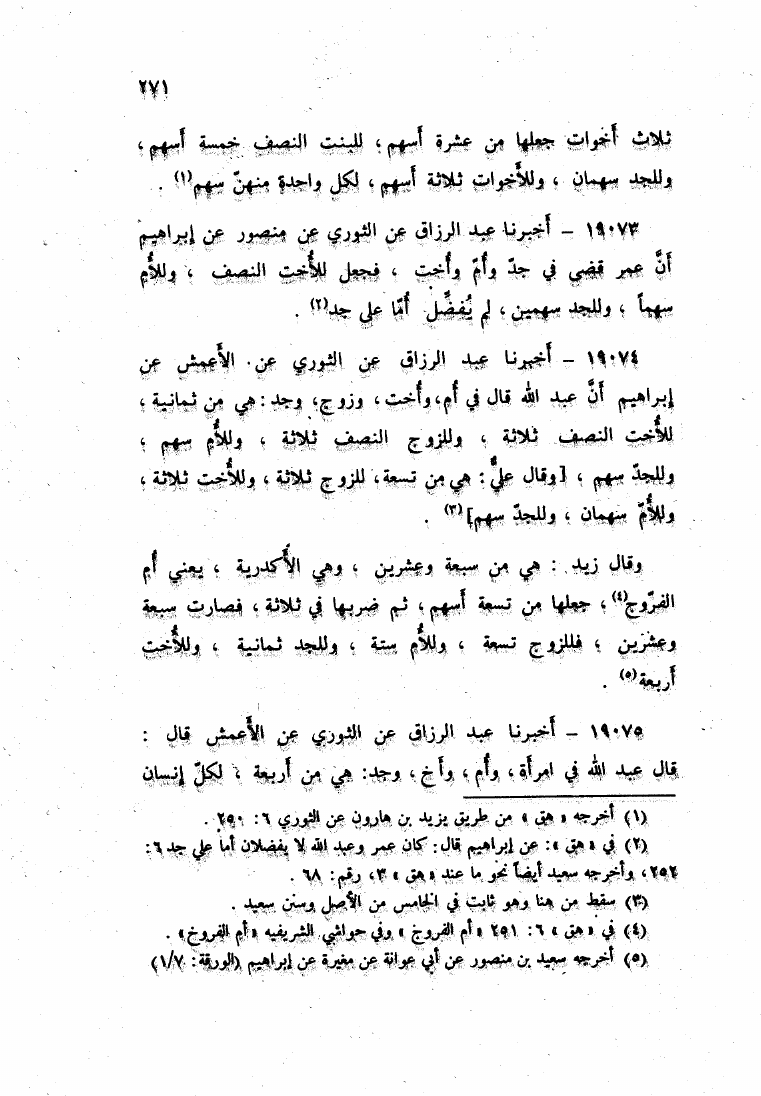 ٢٧١
ثلاث أخوات جعلها من عشرة أسهم ؛ للبنت النصف خمسة أسهم ،
وللجد سهمان ، وللأخوات ثلاثة أسهم ، لكل واحدة منهنّ سهم(١) .
١٩٠٧٣ – أخبرنا عبد الرزاق عن الثوري عن منصور عن إبراهيم
أنَّ عمر قضى في جدّ وأمّ وأخت ، فجعل للأُخت النصف ، وللأُم
سهماً ، وللجد سهمين ، لم يُفضِّل أُمّا على جد(٢) .
١٩٠٧٤ – أخبرنا عبد الرزاق عن الثوري عن الأعمش عن
إبراهيم أنَّ عبد الله قال في أُم، وأُخت ، وزوج، وجد : هي من ثمانية ،
للأُخت النصف ثلاثة ، وللزوج النصف ثلاثة ، وللأُم سهم ،
وللجدّ سهم ، [وقال عليٌّ : هي من تسعة ، للزوج ثلاثة ، وللأُخت ثلاثة ،
وللأُمّ سهمان ، وللجدّ سهم](٣) .
وقال زيد : هي من سبعة وعشرين ، وهي الأَكدرية ، يعني أم
الفرّوج(٤) ، جعلها من تسعة أسهم ، ثم ضربها في ثلاثة ، فصارت سبعة
وعشرين ؛ فللزوج تسعة ، وللأُم ستة ، وللجد ثمانية ، وللأُخت
أربعة(٥) .
١٩٠٧٥ – أخبرنا عبد الرزاق عن الثوري عن الأعمش قال :
قال عبد الله في امرأة ، وأُم ، وأخ ، وجد : هي من أربعة ، لكلّ إنسان
(١) أخرجه « هق » من طريق يزيد بن هارون عن الثوري ٦ : ٢٥٠ .
(٢) في « هق » : عن إبراهيم قال : كان عمر وعبد الله لا يفضلان أماً على جد ٦ :
٢٥٢ ، وأخرجه سعيد أيضاً نحو ما عند « هق » ٣ ، رقم : ٦٨ .
(٣) سقط من هنا وهو ثابت في الخامس من الأصل وسنن سعيد .
(٤) في « هق » ٦ : ٢٥١ « أم الفروج » وفي حواشي الشريفيه « أم الفروخ » .
(٥) أخرجه سعيد بن منصور عن أبي عوانة عن مغيرة عن إبراهيم (الورقة : ١/٧)